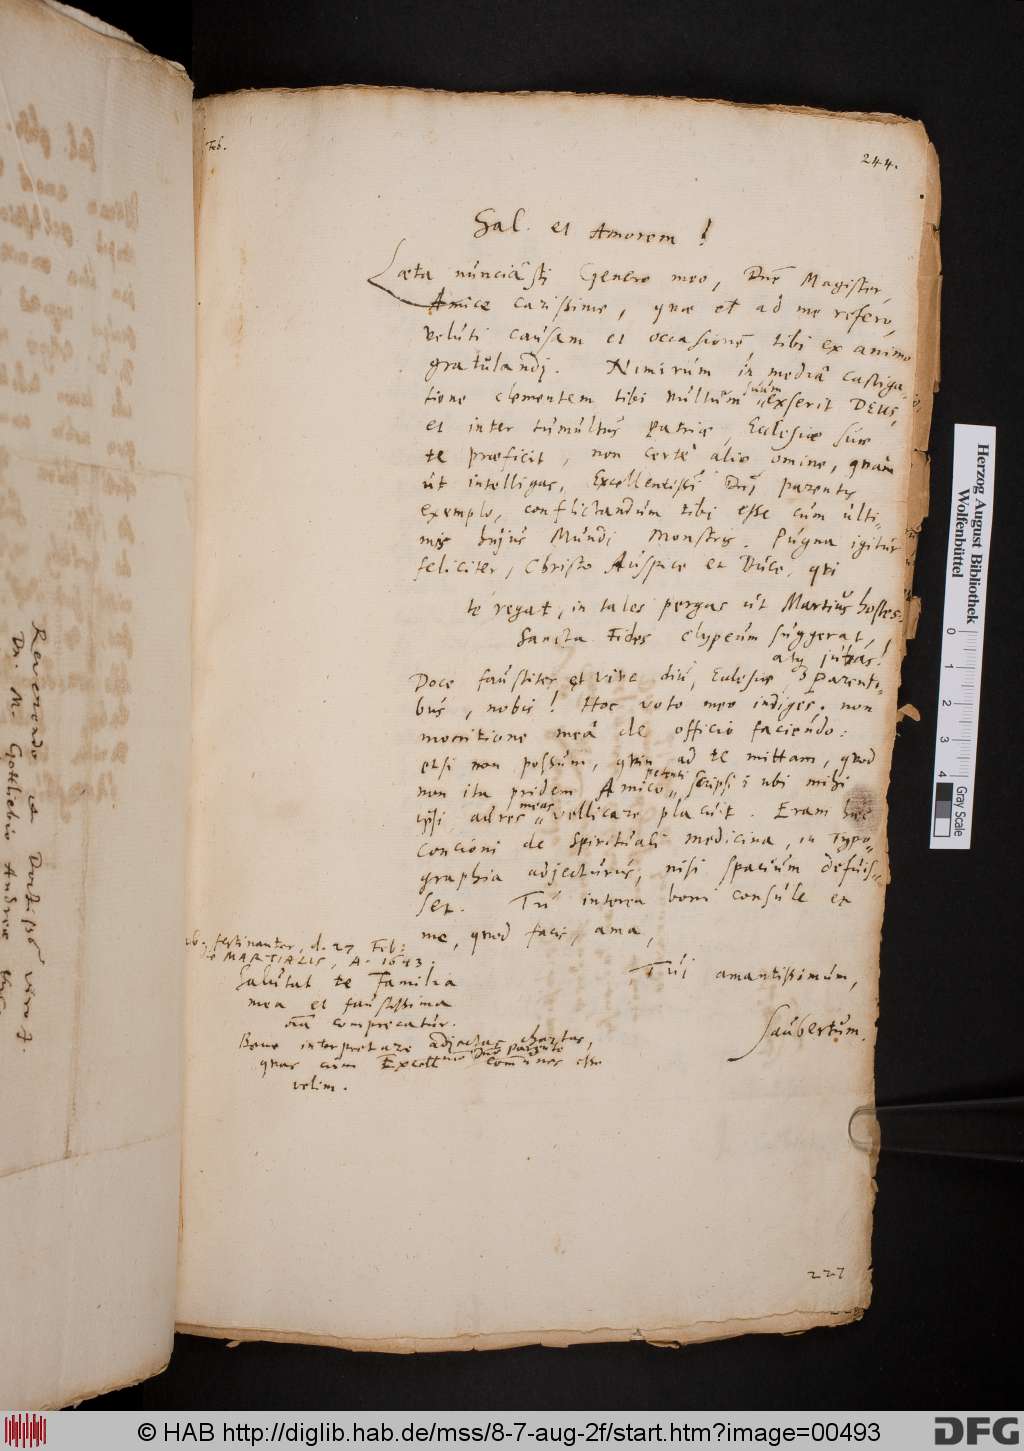 Feb.
244.
Sal. et Amorem!
Læta nunciâsti Genero meo, Dnē Magister,
Amice carissime, quæ et ad me refero,
veluti causam et occasionē tibi ex animo
gratulandj. Nimirùm in mediâ castiga-
tione clementem tibi vultum suum exserit DEUS,
et inter tumultus patriæ, Ecclesiæ suæ
te præficit, non certè alio omine, quàm
ut intelligas, Excellentissi Dnj parentis
exemplo, conflictandum tibj esse cum ulti-
mis hujus Mundi Monstris. Pugna igitur
feliciter, Christo Auspice et Duce, qui
te regat, in tales pergas ut Martius hostes.
Sancta Fides clypeum suggerat,
atq juvas!
Doce faustiter, et vive diu, Ecclesiæ, Parenti-
bus, nobis! Hoc voto meo indiges. non
monitione meâ de officio faciendo:
etsi non possum, quin ad te mittam, quod
non ita pridem Amico petenti scripsi i ubi mihi
ipsi aures meas vellicare placuit. Eram hæc
Concioni de Spirituali medicina, in Typo-
graphia adjecturus, nisi spacium defuis-
set. Tu interea boni consule et
me, quod facis, ama,
Tuj amantissimum,
Saubertum.
festinanter, d. 27 Feb.
MARTIALIS, A. 1643.
Salutat te Familia
mea et faustissima
oīa comprecatur.
Bene interpretare adjectas chartas,
quas cum Excell mo Dno parente com̄unes esse
velim.
227
Reverendo et Doctiss. viro
Dn. M. Gottliebio Andreæ
Herzog August Bibliothek
Wolfenbüttel
0 1 2 3 4
Gray Scale
© HAB http://diglib.hab.de/mss/8-7-aug-2f/start.htm?image=00493
DFG